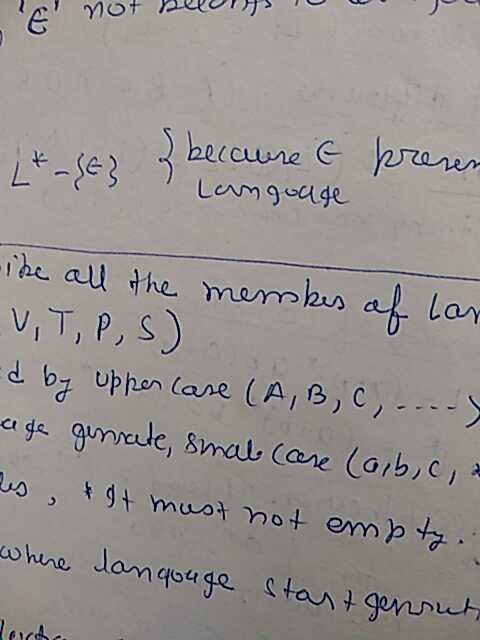 'ϵ' not belongs to
L* - {ϵ} } because ϵ presen
Langouge
ibe all the membes of lan
V, T, P, S)
d by uppercase (A, B, C, ----)
age genrate, small case (a, b, c, *
les, * It must not empty.
where langouge start genrat